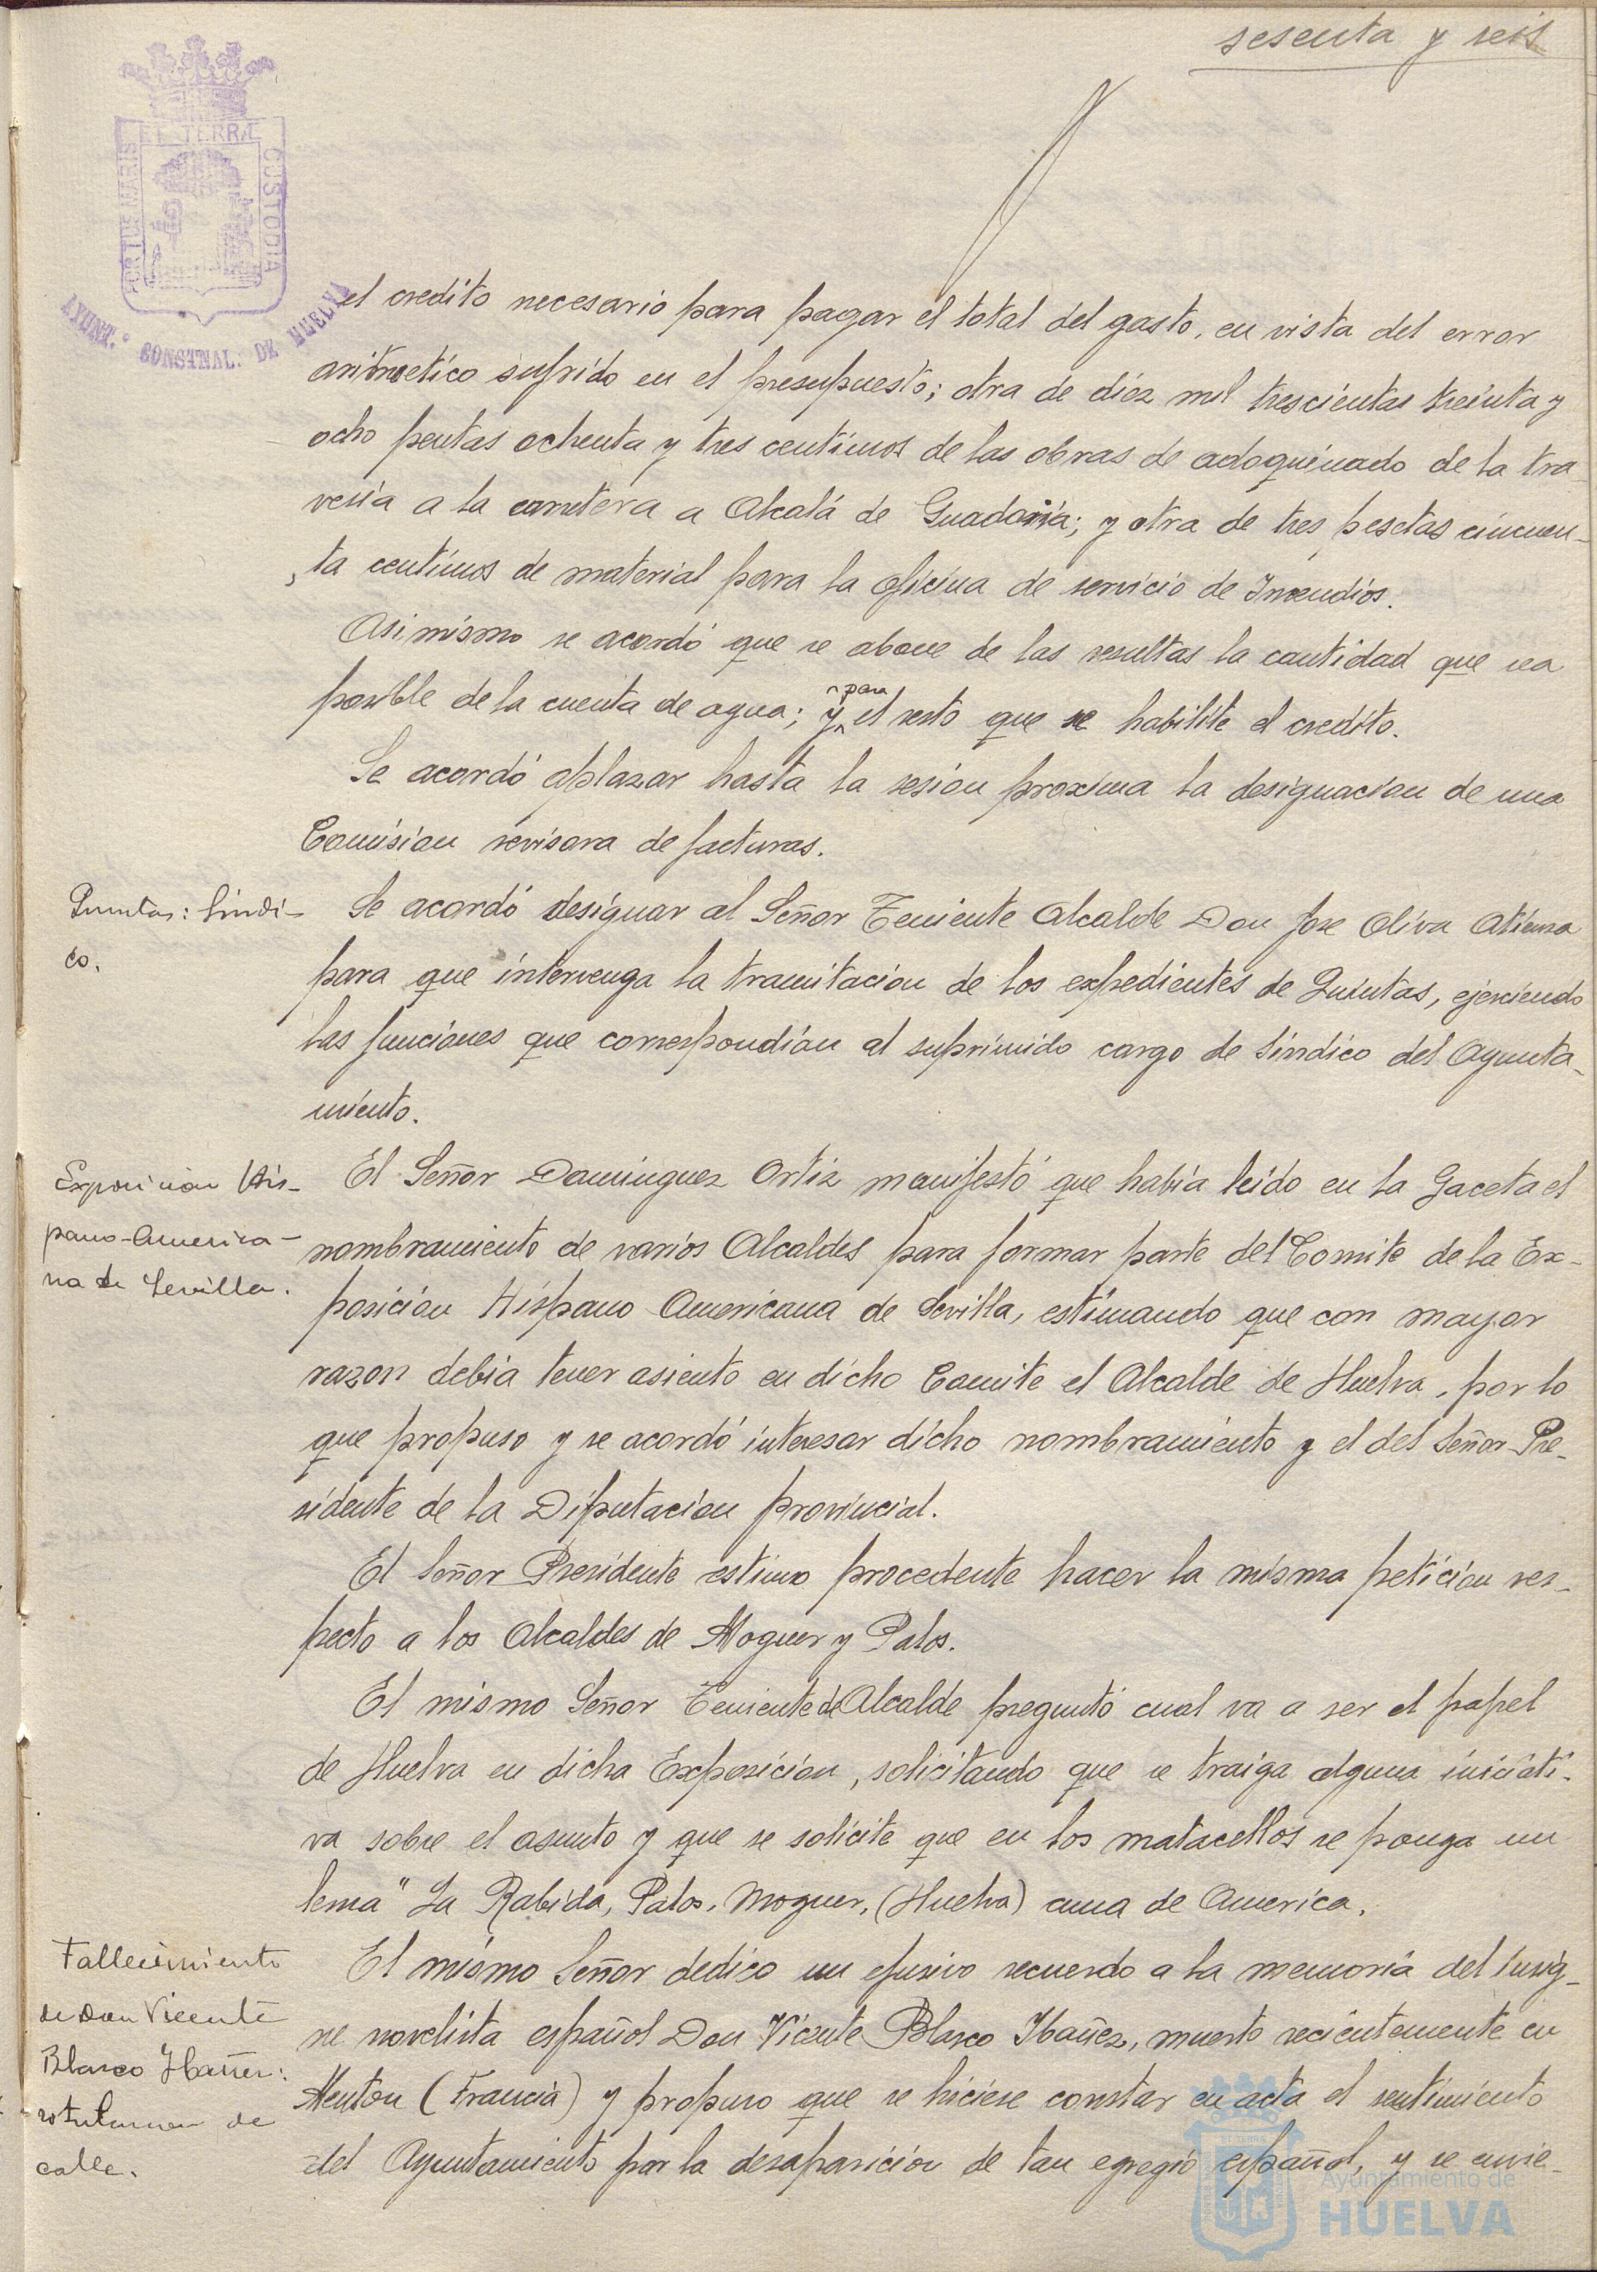 sesenta y seis
PORTUS MARIS
ET TERRÆ
CUSTODIA
AYUNT.º CONSTNAL. DE HUELVA
el credito necesario para pagar el total del gasto, en vista del error
aritmetico sufrido en el presupuesto; otra de diez mil trescientas treinta y
ocho pentas ochenta y tres centimos de las obras de adoquinado de la tra-
vesia a la carretera a Alcalá de Guadaira; y otra de tres pesetas cincuen-
ta centimos de material para la oficina de servicio de Incendios.
Asimismo se acordó que se abone de las resultas la cantidad que sea
posible de la cuenta de agua; y para el resto que se habilite el credito.
Se acordó aplazar hasta la sesion proxima la designacion de una
Comision revisora de facturas.
Quintas: Sindi-
co.
Se acordó designar al Señor Teniente Alcalde Don Jose Oliva Atienza
para que intervenga la tramitacion de los expedientes de Quintas, ejerciendo
las funciones que correspondian al suprimido cargo de Sindico del Ayunta-
miento.
Exposicion His-
pano-America-
na de Sevilla.
El Señor Dominguez Ortiz manifestó que habia leido en la Gaceta el
nombramiento de varios Alcaldes para formar parte del Comite de la Ex-
posicion Hispano Americana de Sevilla, estimando que con mayor
razon debia tener asiento en dicho Comite el Alcalde de Huelva, por lo
que propuso y se acordó interesar dicho nombramiento y el del Señor Pre-
sidente de la Diputacion provincial.
El Señor Presidente estimo procedente hacer la misma peticion res-
pecto a los Alcaldes de Moguer y Palos.
El mismo Señor Teniente de Alcalde preguntó cual va a ser el papel
de Huelva en dicha Exposicion, solicitando que se traiga alguna iniciati-
va sobre el asunto y que se solicite que en los matacellos se ponga un
lema "La Rabida, Palos, Moguer, (Huelva) cuna de America.
Fallecimiento
de Don Vicente
Blasco Ibañez:
rotulacion de
calle.
El mismo Señor dedico un efusivo recuerdo a la memoria del insig-
ne novelista español Don Vicente Blasco Ibañez, muerto recientemente en
Menton (Francia) y propuso que se hiciese constar en acta el sentimiento
del Ayuntamiento por la desaparicion de tan egregio español, y se envie-
Ayuntamiento de
HUELVA